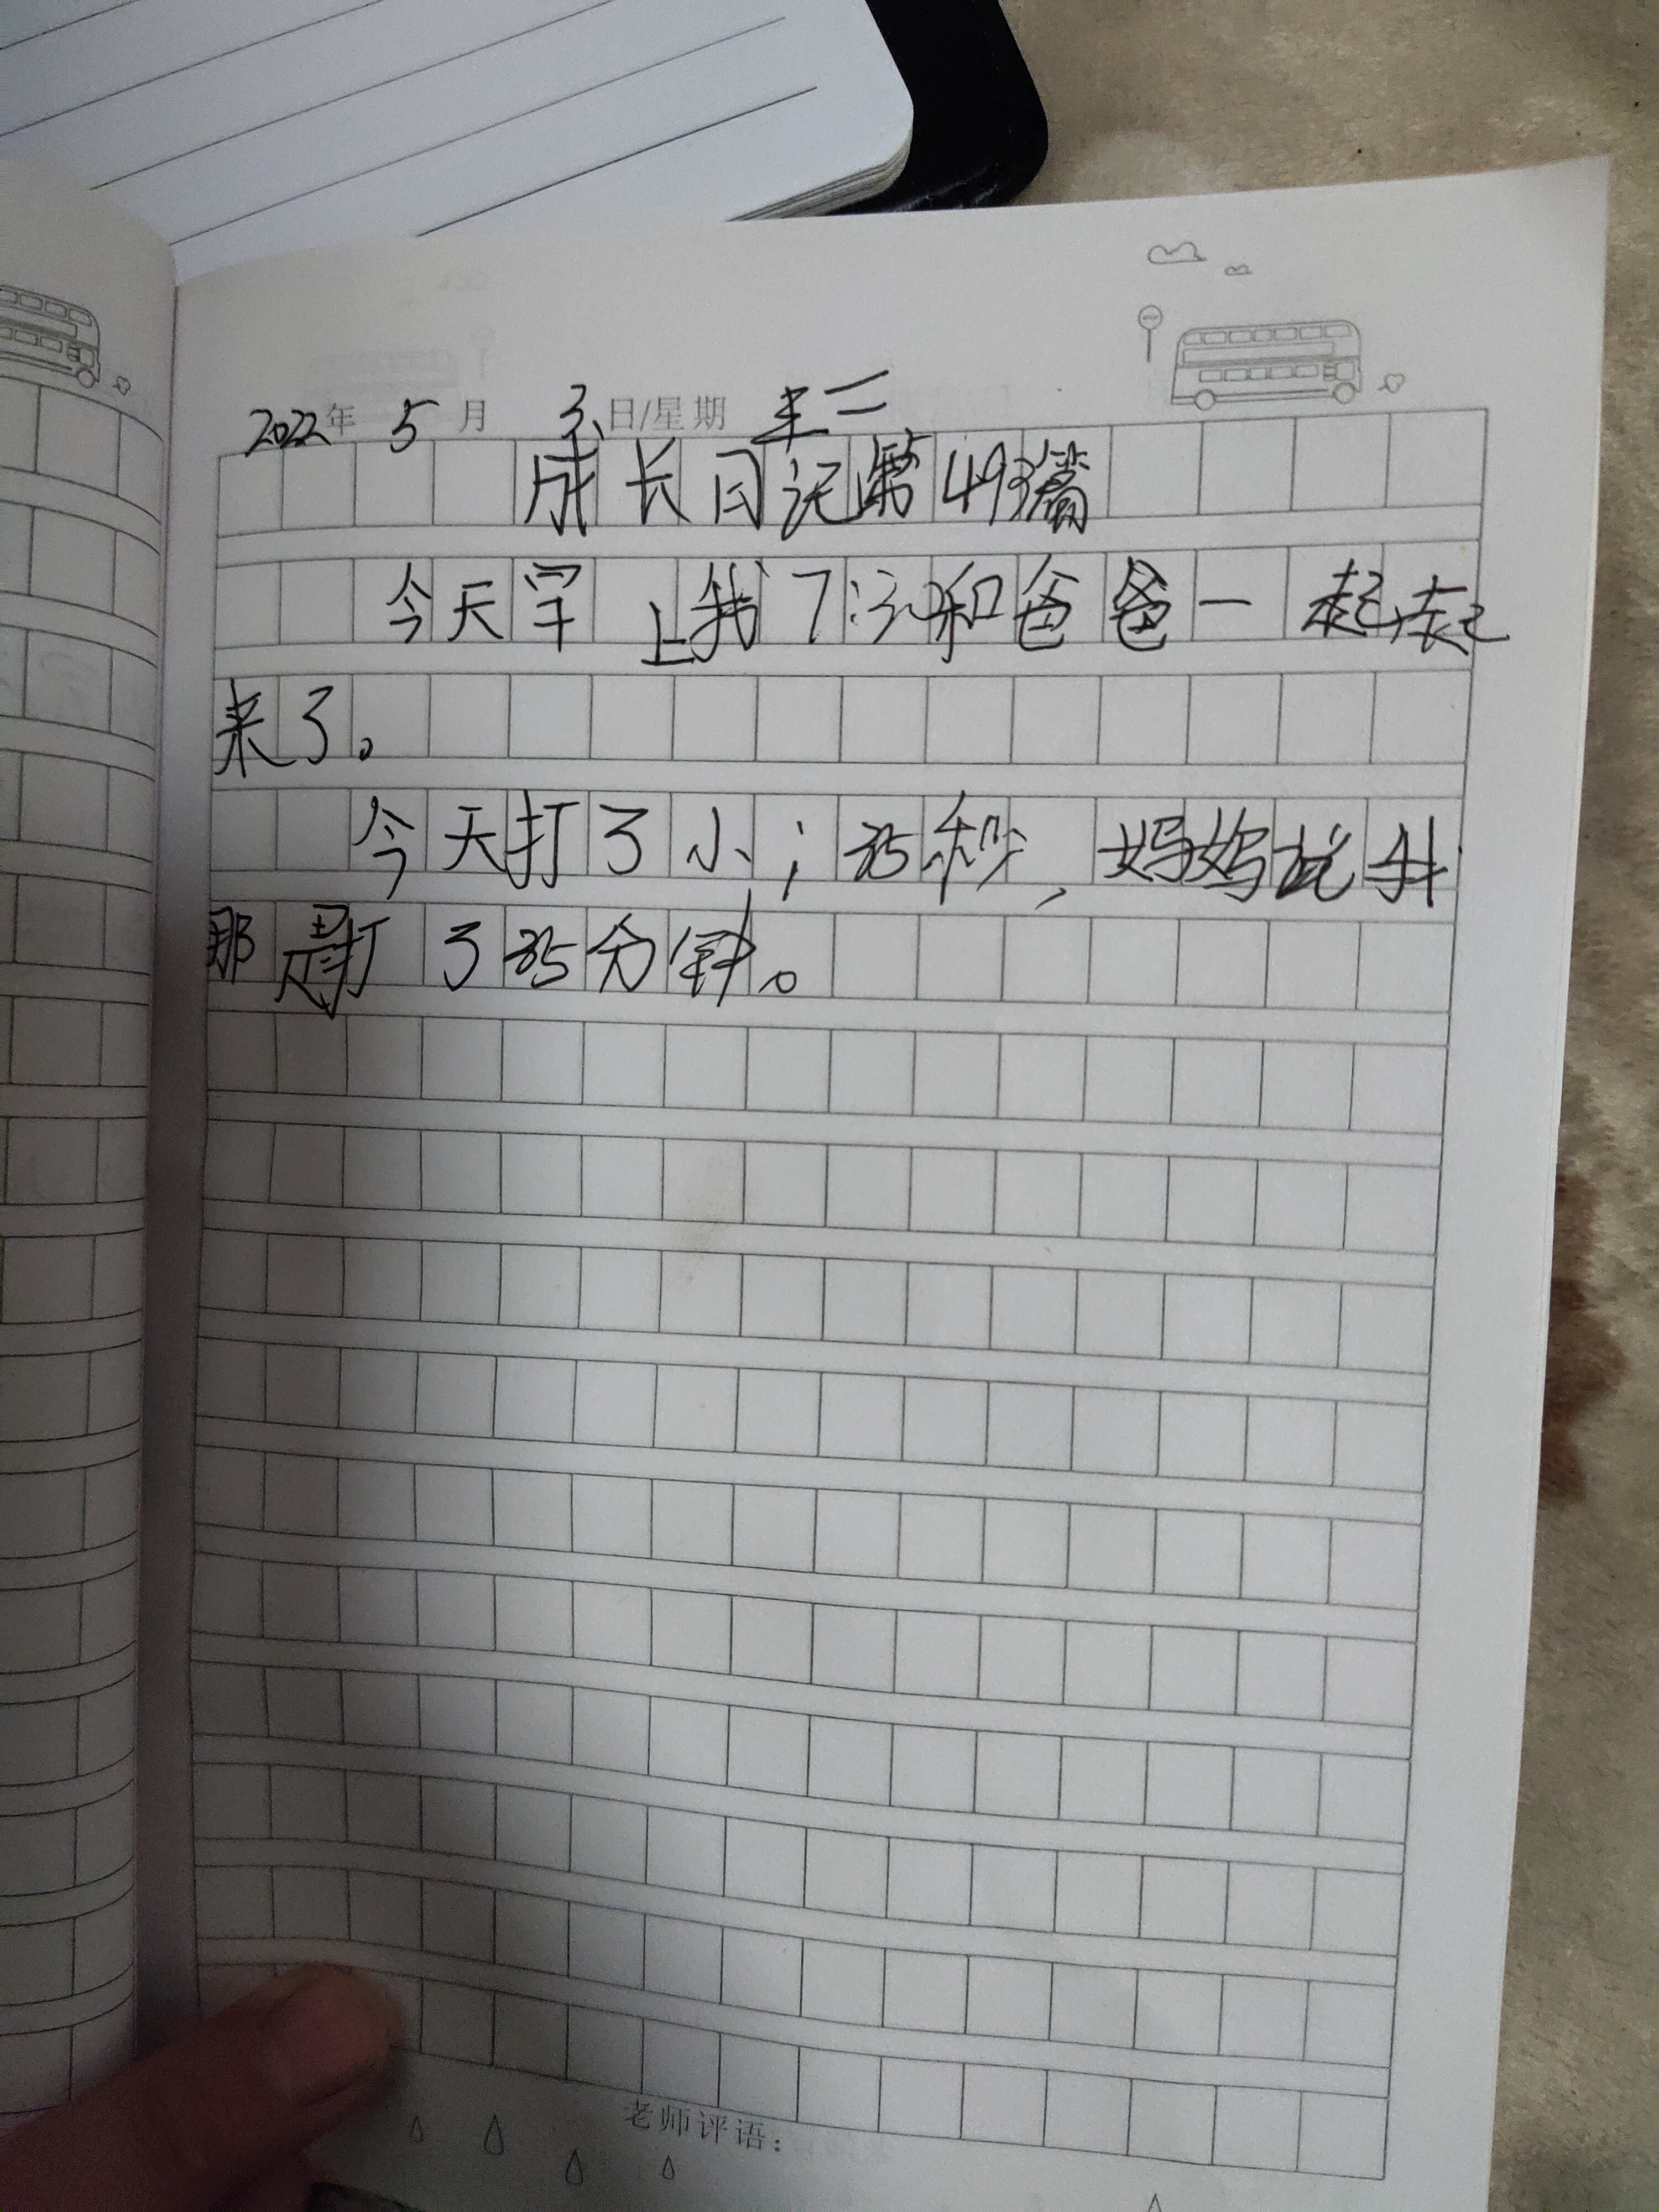 2022年 5月 3日/星期
成长日记第49篇
今天早上我7:30和爸爸一起起
来了。
今天打了小;35秒,妈妈说
那是打了35分钟。
老师评语: